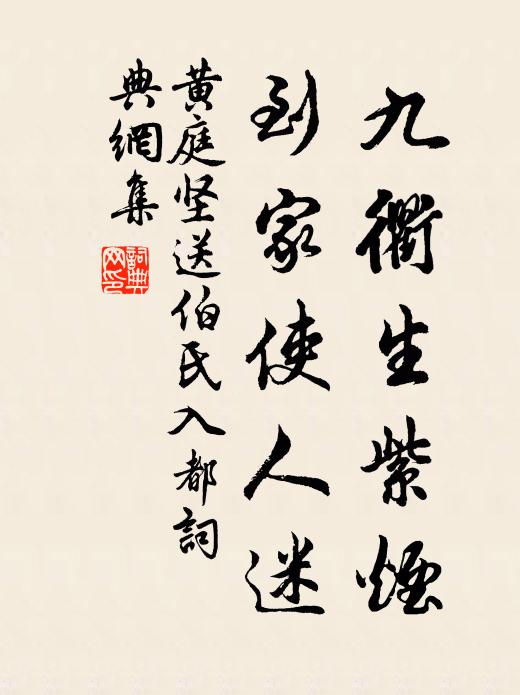 九衢生紫煙
到家使人迷
黄庭坚送伯氏入都詞
典網集
詞典
网印